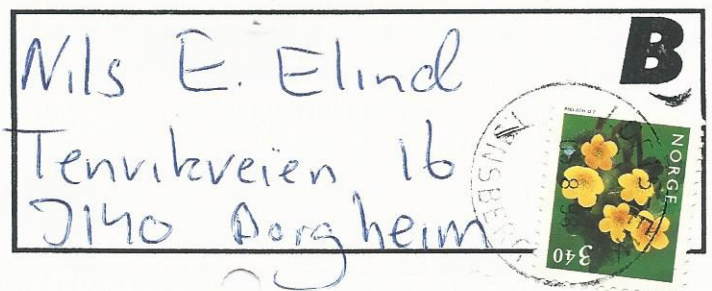 Nils E. Elind
B
Tenvikveien 16
3140 Borgheim
NORGE
3 40